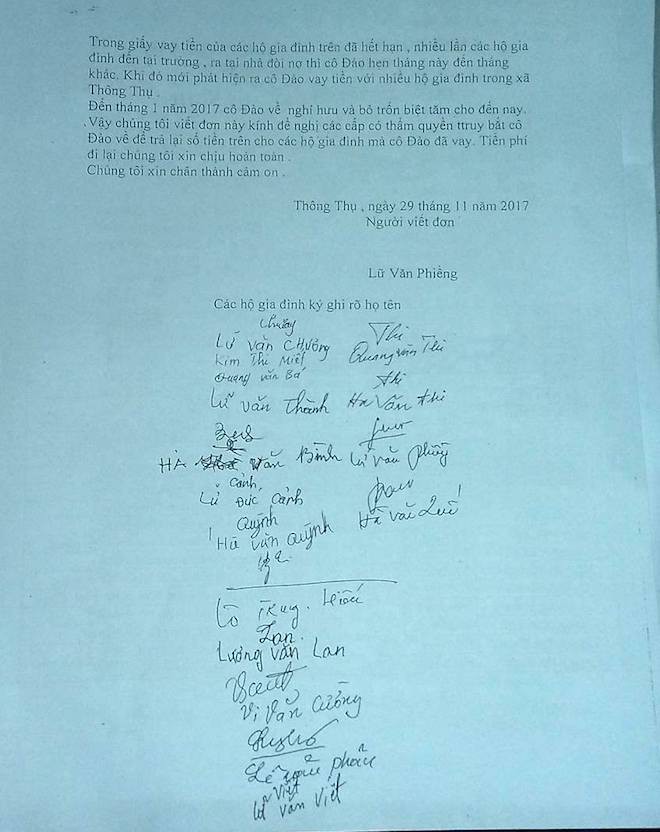 Trong giấy vay tiền của các hộ gia đình trên đã hết hạn , nhiều lần các hộ gia
đình đến tại trường , ra tại nhà đòi nợ thì cô Đào hẹn tháng này đến tháng
khác. Khi đó mới phát hiện ra cô Đào vay tiền với nhiều hộ gia đình trong xã
Thông Thụ .
Đến tháng 1 năm 2017 cô Đào về nghỉ hưu và bỏ trốn biệt tăm cho đến nay.
Vậy chúng tôi viết đơn này kính đề nghị các cấp có thẩm quyền ttruy bắt cô
Đào về để trả lại số tiền trên cho các hộ gia đình mà cô Đào đã vay. Tiền phí
đi lại chúng tôi xin chịu hoàn toàn .
Chúng tôi xin chân thành cảm on .
Thông Thụ , ngày 29 tháng 11 năm 2017
Người viết đơn
Lữ Văn Phiềng
Các hộ gia đình ký ghi rõ họ tên
Thi
Lữ văn Chương
Quang văn Thi
Kim Thị Miết
Quang văn Bá
Thi
Lữ văn Thành
Hà Văn Thi
HÀ Văn Bình
Lữ văn
Cảnh
Lữ Đức Cảnh
Hà văn Quế
Quỳnh
Hà văn Quỳnh
Lò
Lan
Lương văn Lan
Vi Văn Cường
Lê
Việt
Lữ văn Việt